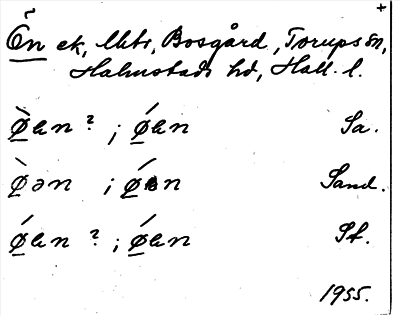 +
Ẽn ek, Mtr, Bosgård, Torups sn,
Halmstads hd, Hall. l.
Ø̀en ? ; Ǿen Sa.
Ø̀ən ; Ǿen Sand.
Ǿen ? ; Ǿen St.
1955.